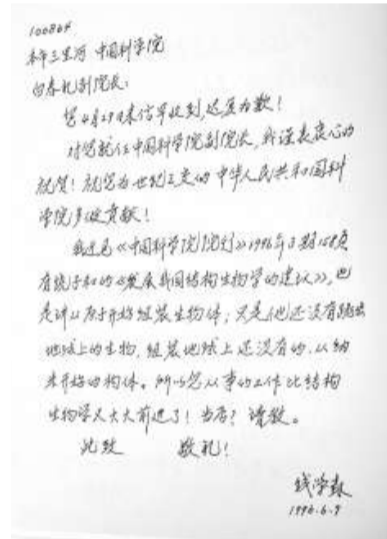 100864
本市三里河 中国科学院
白春礼副院长:
您4月29日来信早收到,迟复为歉!
对您就任中国科学院副院长,我谨表衷心的
祝贺! 祝您为世纪之交的中华人民共和国科
学院多做贡献!
我近见《中国科学院院刊》1996年3期158页
有饶子和的《发展我国结构生物学的建议》,也
是讲从原子开始组装生物体;只是他还没有跳出
地球上的生物,组装地球上还没有的、从纳
米开始的构体。所以您从事的工作比结构
生物学又大大前进了! 当否? 请教。
此致 敬礼!
钱学森
1996.6.9